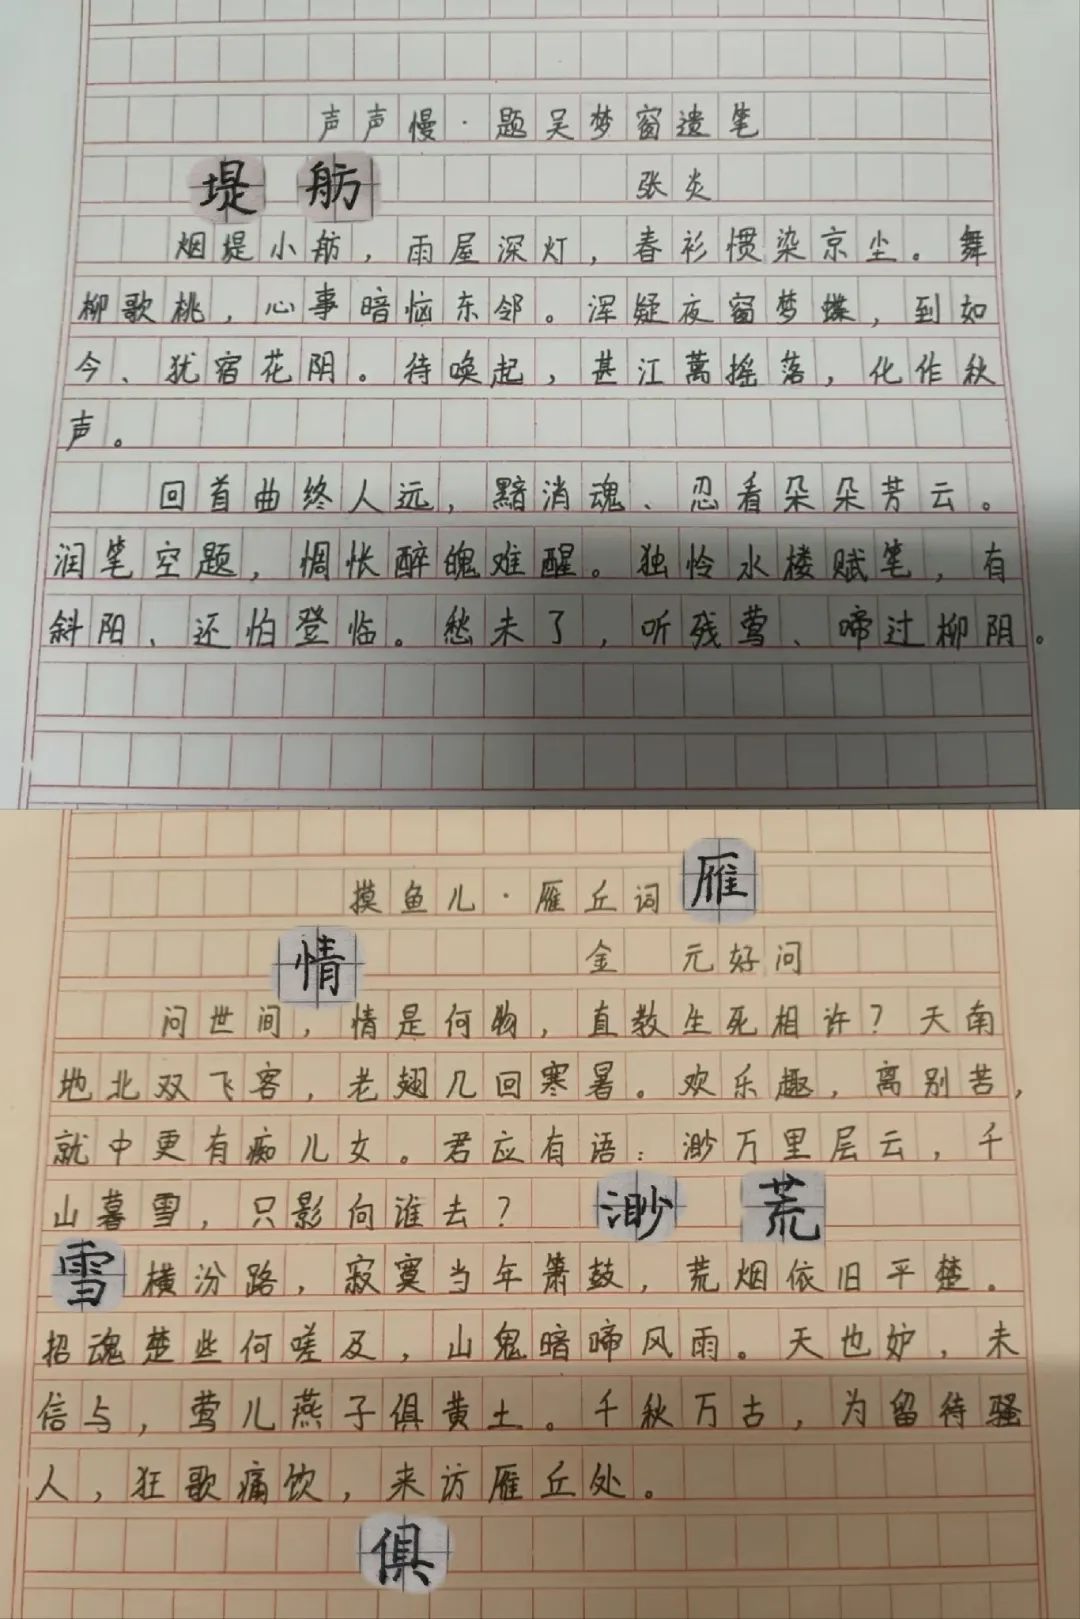 声声慢·题吴梦窗遗笔
张炎
堤 舫
烟堤小舫，雨屋深灯，春衫惯染京尘。舞
柳歌桃，心事暗恼东邻。浑疑夜窗梦蝶，到如
今、犹宿花阴。待唤起，甚江蓠摇落，化作秋
声。
回首曲终人远，黯消魂、忍看朵朵芳云。
润笔空题，惆怅醉魄难醒。独怜水楼赋笔，有
斜阳、还怕登临。愁未了，听残莺、啼过柳阴。
摸鱼儿·雁丘词
雁
情
金 元好问
问世间，情是何物，直教生死相许？天南
地北双飞客，老翅几回寒暑。欢乐趣，离别苦，
就中更有痴儿女。君应有语：渺万里层云，千
山暮雪，只影向谁去？
渺 荒
雪
横汾路，寂寞当年箫鼓，荒烟依旧平楚。
招魂楚些何嗟及，山鬼暗啼风雨。天也妒，未
信与，莺儿燕子俱黄土。千秋万古，为留待骚
人，狂歌痛饮，来访雁丘处。
俱